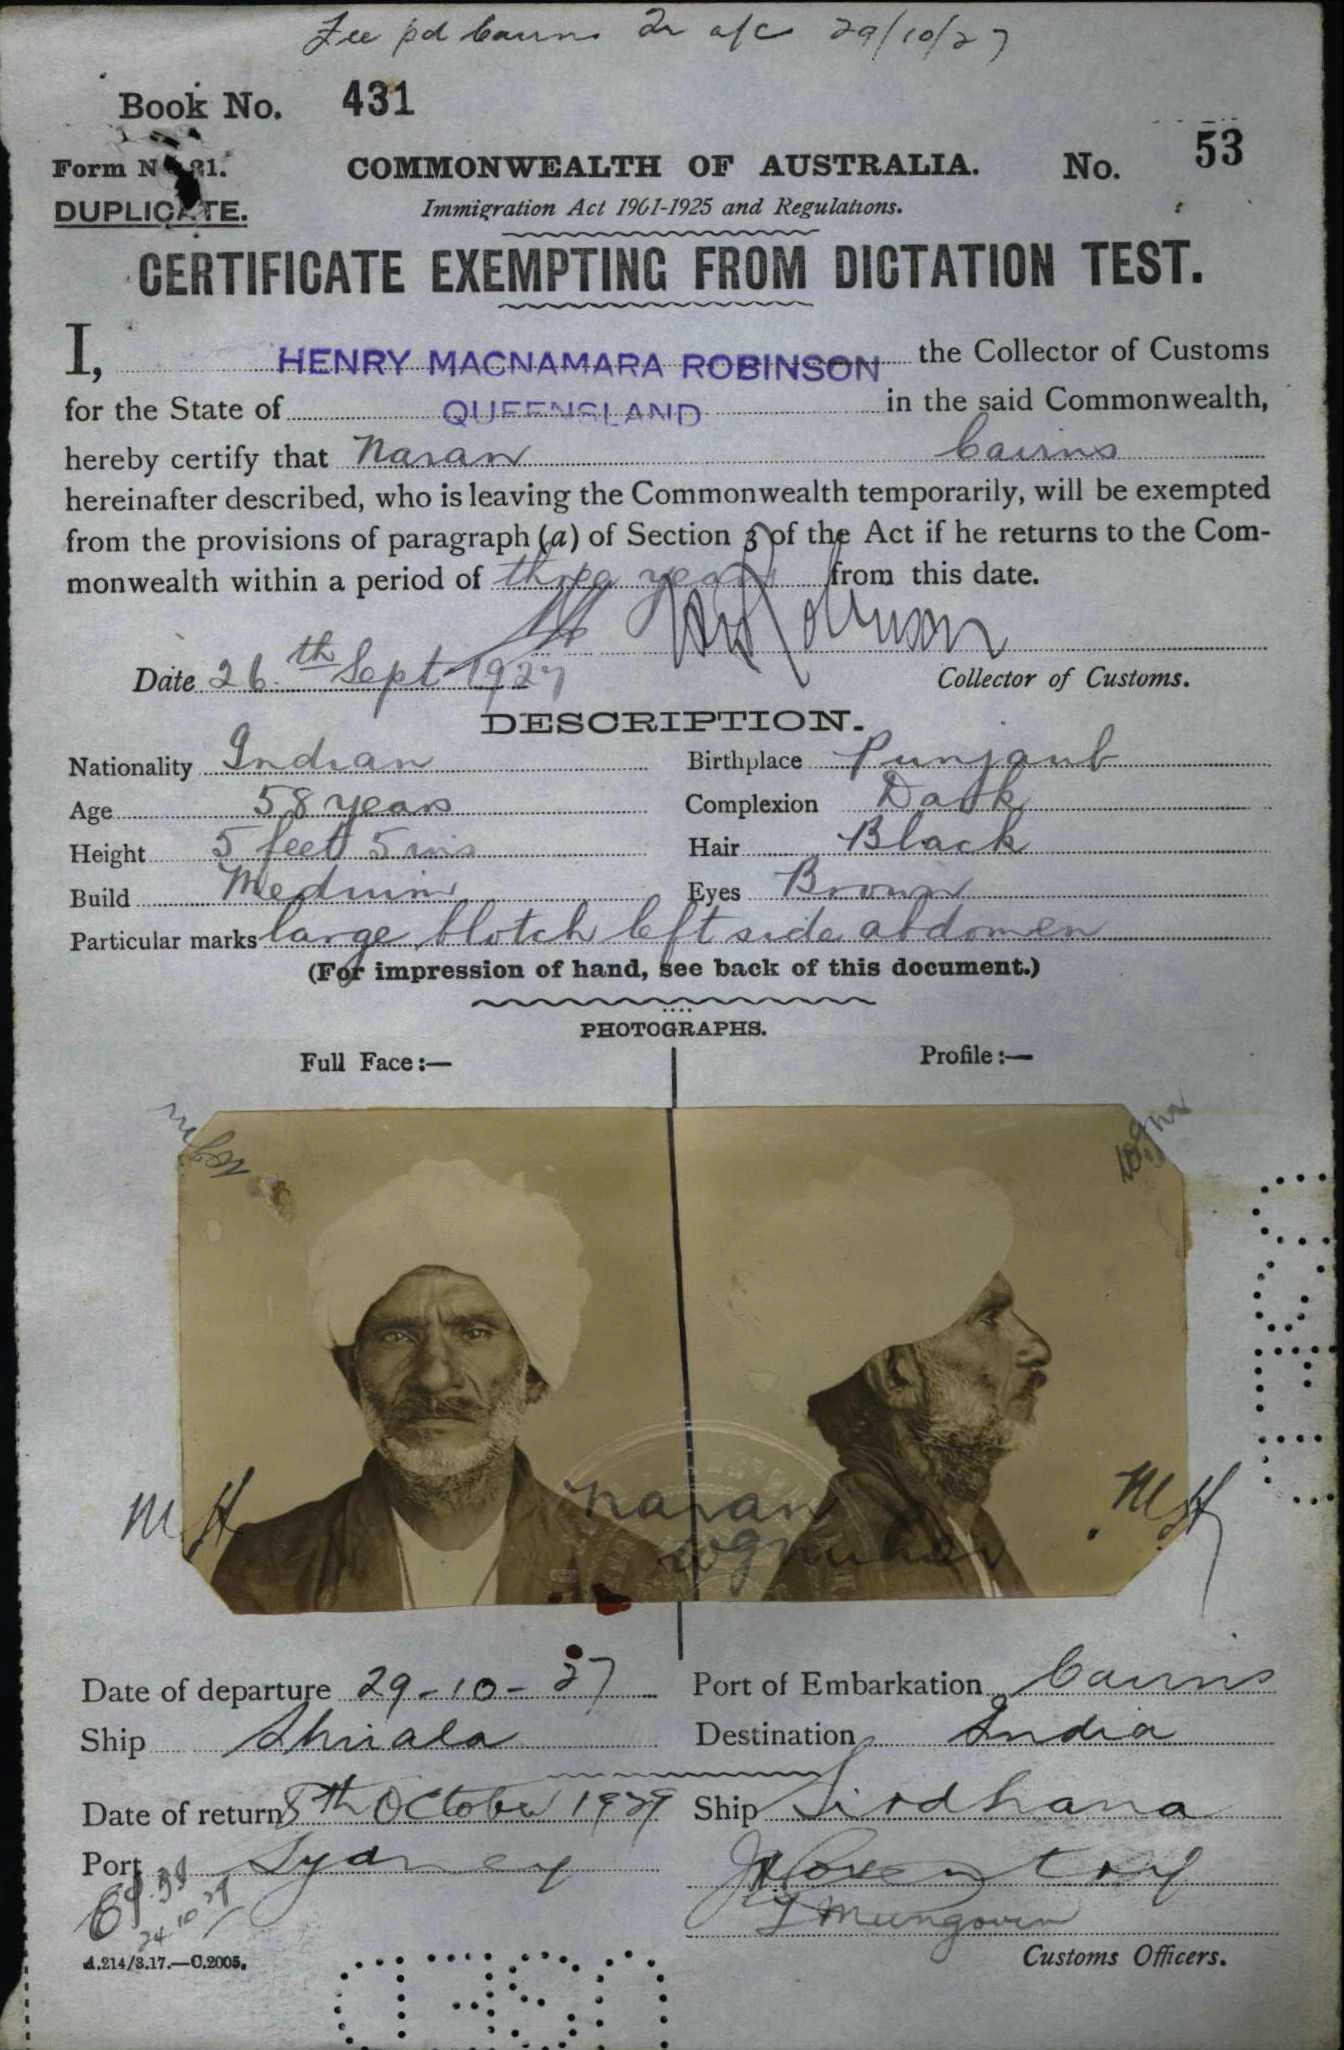 Fee pd Cairns 2 a/c 29/10/27
Book No. 431
Form No. 21. COMMONWEALTH OF AUSTRALIA. No. 53
DUPLICATE. Immigration Act 1901-1925 and Regulations.
CERTIFICATE EXEMPTING FROM DICTATION TEST.
I, HENRY MACNAMARA ROBINSON the Collector of Customs
for the State of QUEENSLAND in the said Commonwealth,
hereby certify that Naran Cairns
hereinafter described, who is leaving the Commonwealth temporarily, will be exempted
from the provisions of paragraph (a) of Section 3 of the Act if he returns to the Com-
monwealth within a period of three years from this date.
Robinson
Date 26th Sept 1927 Collector of Customs.
DESCRIPTION.
Nationality Indian Birthplace Punjaub
Age 58 years Complexion Dark
Height 5 feet 5 ins Hair Black
Build Medium Eyes Brown
Particular marks large blotch left side abdomen
(For impression of hand, see back of this document.)
PHOTOGRAPHS.
Full Face:— Profile:—
Naran
M.H. M.H.
Date of departure 29-10-27 Port of Embarkation Cairns
Ship Shirala Destination India
Date of return 8th October 1929 Ship Sirdhana
Port Sydney
24 10 29
Mungovan
A.214/3.17.—C.2005. Customs Officers.